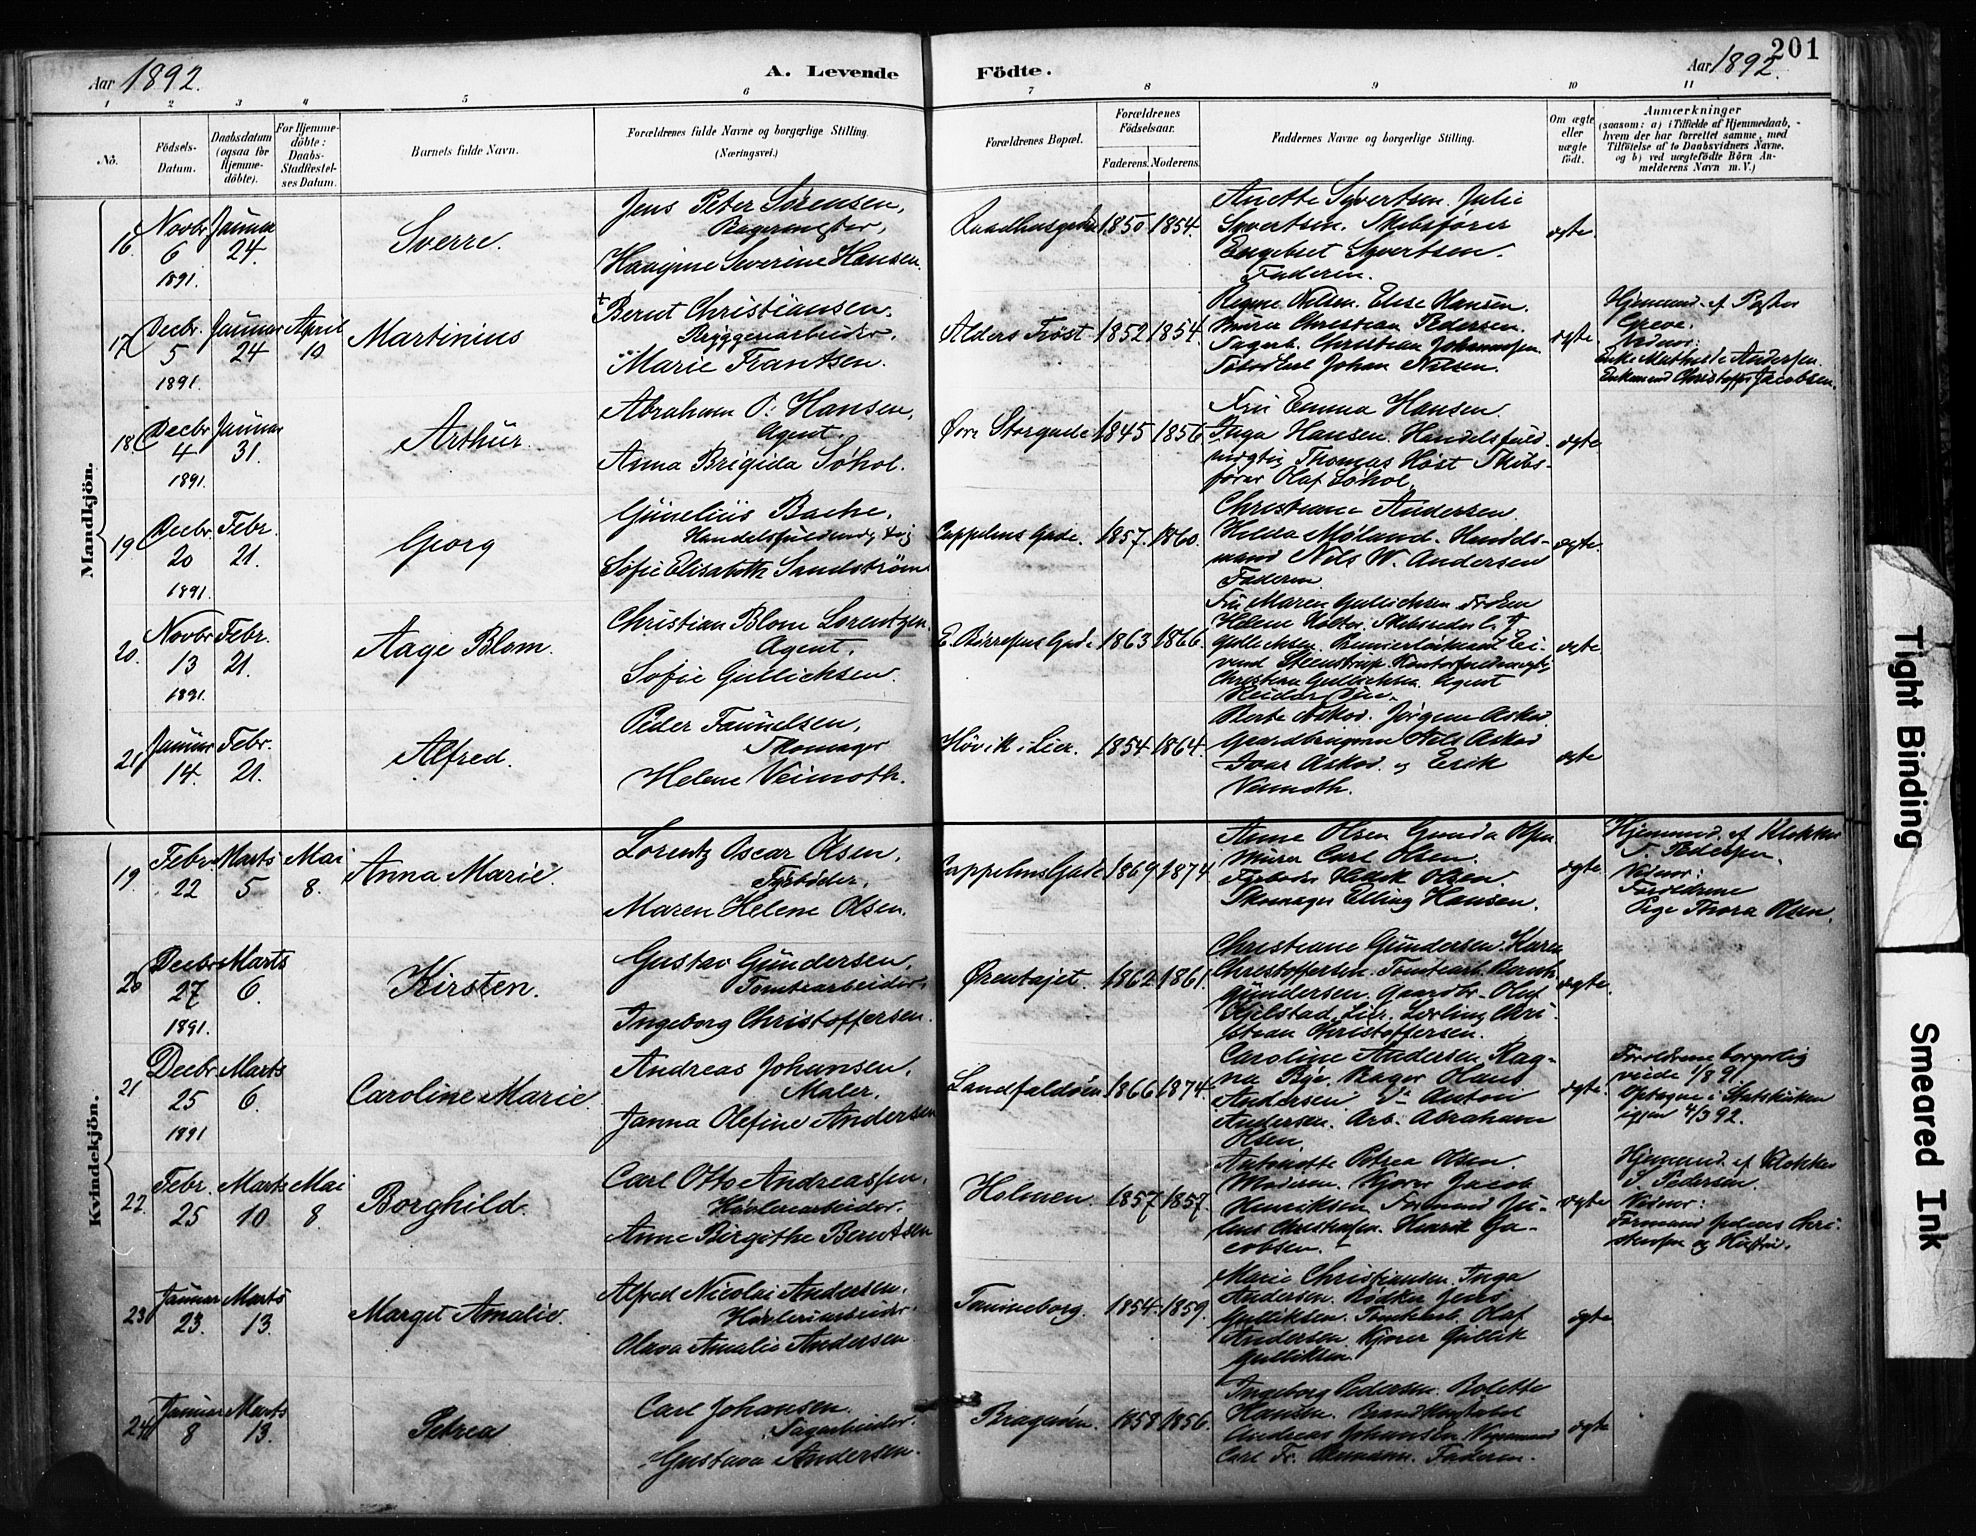 201
Aar 1892.
A. Levende Födte.
Aar 1892.
1 2 3 4 5 6 7 8 9 10 11
No.
Födsels-
Datum.
Daabsdatum
(ogsaa for
Hjemme-
döbte).
For Hjemme-
döbte:
Daabs-
Stadfæstel-
ses Datum.
Barnets fulde Navn.
Forældrenes fulde Navne og borgerlige Stilling.
(Næringsvei.)
Forældrenes Bopæl.
Forældrenes
Födselsaar.
Faderens. Moderens.
Faddernes Navne og borgerlige Stilling.
Om ægte
eller
uægte
födt.
Anmærkninger
(saasom: a) i Tilfælde af Hjemmedaab,
hvem der har forrettet samme, med
Tilföielse af to Daabsvidners Navne,
og b) ved uægtefödte Börn An-
melderens Navn m. V.)
Mandkjön.
16 Novbr 6 1891. Januar 24.
Sverre.
Jens Peter Sørensen,
Bagermester,
Severine Hansen.
Raadhusgaden 1850 1854.
Anette Syvertsen. Julie
Syvertsen. Skibsfører
Engebret Syvertsen.
Faderen.
ægte.
17 Decbr. 5 1891. Januar 24 April 10
Martinius
Bernt Christiansen.
Bryggeriarbeider.
Marie Frantsen.
Alders Trøst 1852 1854.
Nilsen. Elise Hansen.
Murer Christian Pedersen.
Sagarb. Christian Johannesen
Johan Nilsen.
ægte.
Hjemmed. af Pastor
Greve.
Vidner:
Enke Mathilde Andersen
Enkemand Christoffer Jacobsen.
18 Decbr 4 1891. Januar 31.
Arthur.
Abraham O. Hansen,
Agent.
Anna Brigida Søhol.
Øvre Storgade 1845 1856
Fru Emma Hansen.
Inga Hansen. Handelsfuld-
mægtig Thomas Høst Skibs-
fører Olaf Søhol.
ægte
19 Decbr 20 1891. Febr. 21.
Georg
Bache,
Handelsfuldmægtig
Sofie Elisabeth Sandstrøm
Cappelens Gade. 1857. 1860.
Christiane Andersen
Hilda Møland. Handels-
mand Nils W. Andersen
Faderen
ægte.
20. Novbr 13 1891. Febr. 21.
Aage Blom.
Christian Blom Lorentzen.
Agent.
Sofie Gullichsen.
1863 1866.
Fru Maren Gullichsen. Frøken
Helene
Gullichsen. Premierløitnant Ei-
vind Steenstrup. Kontorfuldmægtig
Christian Gullichsen. Agent
Reidar
ægte
21 Januar 14. Febr. 21.
Alfred.
Peder
Skomager
Helene Veimoth.
Høvik i Lier. 1854 1864.
Berte Askov. Jørgen Askov.
Gaardbrugerne Nils Askov
Ivar Askov. og Erik
Veimoth.
ægte
Kvindekjön.
19 Febr. 22 Marts 5 Mai 8.
Anna Marie.
Lorentz Oscar Olsen.
Fyrbøder.
Maren Helene Olsen.
Cappelens Gade 1869 1874
Anne Olsen Gunda Olsen
Murer Carl Olsen.
Fyrbøder Olsen.
Skomager Elling Hansen.
ægte.
Hjemmed. af Klokker
T. Pedersen.
Vidner:
Forældrene
Pige Thora Olsen.
20 Decbr 27 1891. Marts 6.
Kirsten.
Gustav Gundersen,
Tomtearbeider.
Ingeborg Christoffersen.
Ørentajet. 1862 1861.
Christiane Gundersen. Karen
Christoffersen. Tomtearb. Bernh.
Gundersen. Gaardbr. Olaf
Kjelstad, Lier. Lærling Chri-
stian Christoffersen.
ægte.
21 Decbr 25 1891 Marts 6.
Caroline Marie.
Andreas Johansen,
Maler.
Janna Olefine Andersen
Landfaldøen 1866 1874.
Caroline Andersen Rag-
na Bye. Bager Hans
Andersen Do Anton
Andersen. Arb. Abraham
Olsen
ægte.
Forældrene borgerlig
viede 1/8 91.
Optagne i Statskirken
igjen 4/3 92.
22. Febr. 25 Marts 10 Mai 8
Borghild.
Carl Otto Andreassen.
Høvleriarbeider.
Anne Birgithe Berntsen
Holmen. 1857 1857.
Antonette Petrea Olsen.
Moderen. Kjører Jacob
Henriksen Formand Ju-
lius Christensen. Henrik Ja-
cobsen.
ægte
Hjemmed. af Klokker
T. Pedersen.
Vidner:
Formand Julius Chri-
stensen og Hustru.
23 Januar 23. Marts 13.
Margit Amalie.
Alfred Nicolai Andersen.
Høvleriarbeider.
Olava Amalie Andersen
1854. 1859.
Marie Christiansen. Inga
Andersen. Bødker Jens
Gulliksen. Tomtearb. Olaf
Andersen Kjører Gullik
Gulliksen.
ægte
24 Januar 8 Marts 13.
Petrea
Carl Johansen.
Sagarbeider.
Gustava Andersen.
Bragerøen. 1858 1856.
Ingeborg Pedersen. Bolette
Hansen. Brandkonstabel
Andreas Johansen Vognmand
Carl Fr. Faderen.
ægte
Tight Binding
Smeared Ink